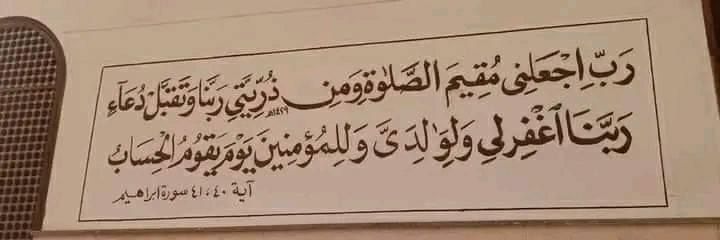 رَبِّ اجْعَلْنِي مُقِيمَ الصَّلَوٰةِ وَمِن ذُرِّيَّتِي رَبَّنَا وَتَقَبَّلْ دُعَآءِ
١٤٢٩هـ
رَبَّنَا ٱغْفِرْ لِي وَلِوَٰلِدَيَّ وَلِلْمُؤْمِنِينَ يَوْمَ يَقُومُ الْحِسَابُ
آية ٤٠، ٤١ سورة ابراهيم